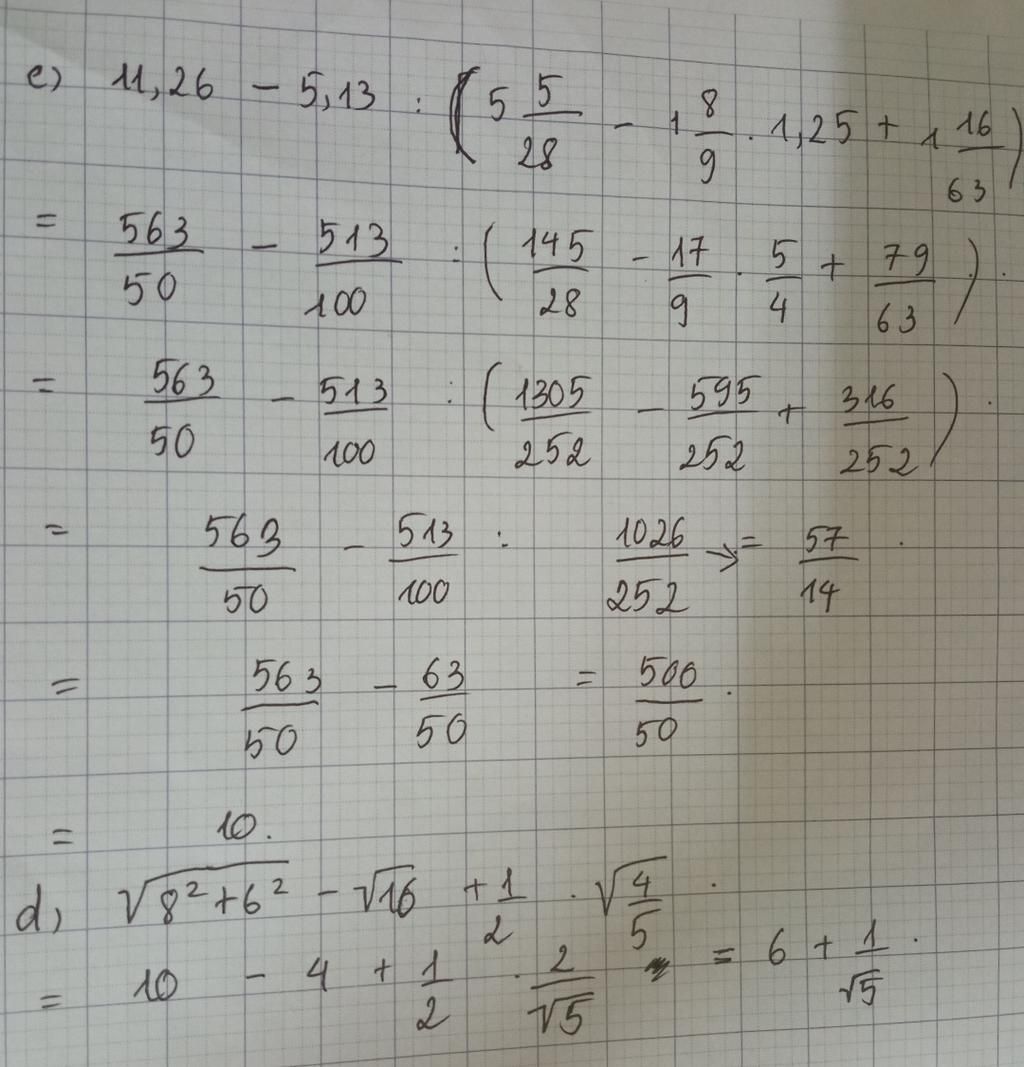 c) 11,26 - 5,13 : (5 5/28 - 1 8/9 . 1,25 + 1 16/63)
= 563/50 - 513/100 : (145/28 - 17/9 . 5/4 + 79/63) .
= 563/50 - 513/100 : (1305/252 - 595/252 + 316/252) .
= 563/50 - 513/100 : 1026/252 → = 57/14 .
= 563/50 - 63/50 = 500/50 .
= 10.
d) √(8² + 6²) - √16 + 1/2 . √(4/5) .
= 10 - 4 + 1/2 . 2/√5 = 6 + 1/√5 .